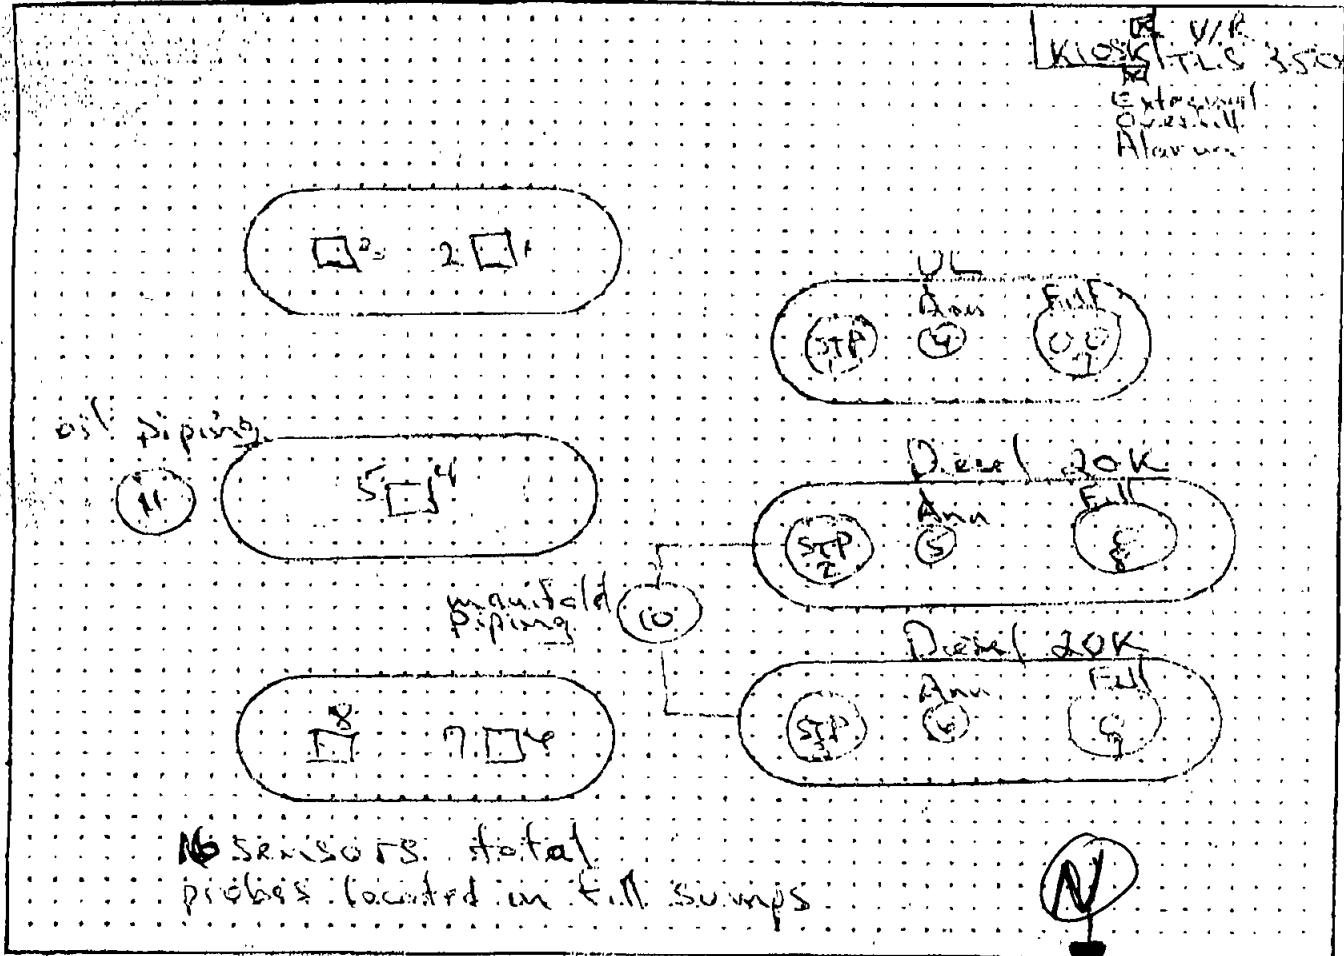 V/R
KIOSK TLS 350
External
Overfill
Alarm
3 2 1
UL
Ann Fill
STP 1 4 7
oil piping
11
5 4
Diesel 20K
Ann Fill
STP 2 5 8
manifold
piping
10
Diesel 20K
Ann Fill
STP 3 6 9
8
7
sensors total
probes located in fill sumps
N